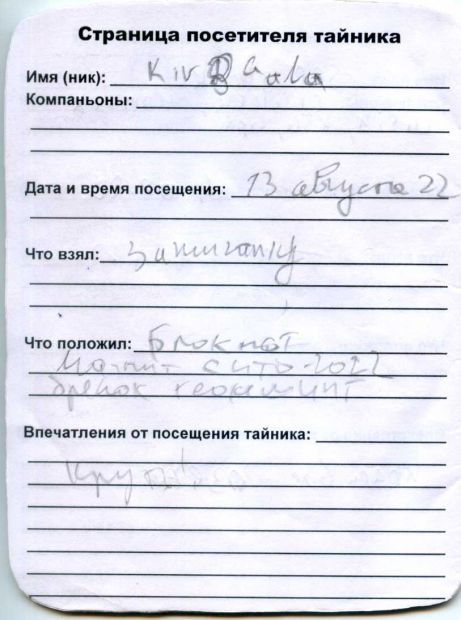 Страница посетителя тайника
Имя (ник): Kiv Gala
Компаньоны:
Дата и время посещения: 13 августа 22
Что взял: Зажигалку
Что положил: Блокнот
Магнит сито-2022
брелок
Впечатления от посещения тайника: